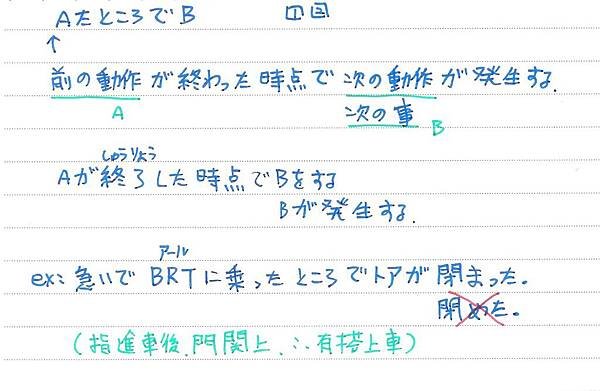 Aたところで B ①②
↑
前の動作が終わった時点で次の動作が発生する.
A 次の事 B
しゅうりょう
Aが終了した時点でBをする
Bが発生する.
アール
ex: 急いで BRTに乗ったところでトアが閉まった.
閉めた.
(指進車後、門関上 ∴有搭上車)